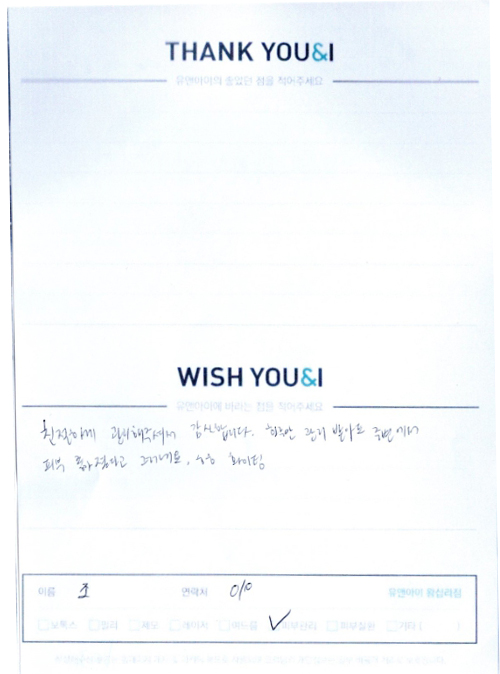 THANK YOU&I
유앤아이의 좋았던 점을 적어주세요
WISH YOU&I
유앤아이에 바라는 점을 적어주세요
친절하게 관리해주셔서 감사합니다. 관리 받아도 주변에서
피부 좋아졌다고 그러네요. 화이팅
이름 조 연락처 010 유앤아이 왕십리점
보톡스 필러 제모 레이저 여드름 ✓피부관리 피부질환 기타 ( )